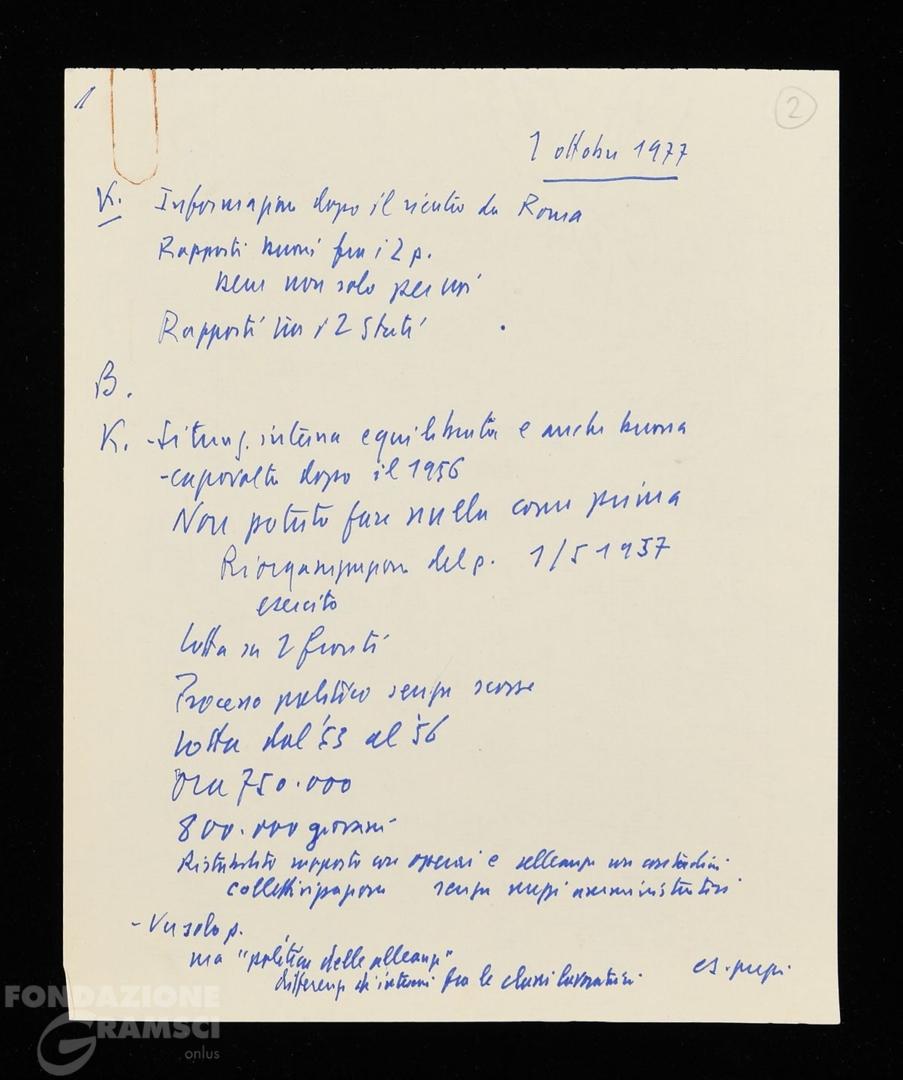 1
2
1 ottobre 1977
K. Informazioni dopo il rientro da Roma
Rapporti buoni fra i 2 p.
bene non solo per noi
Rapporti tra i 2 Stati
B.
K. - Situaz. interna equilibrata e anche buona
- capovolta dopo il 1956
Non potuto fare nulla come prima
Riorganizzazione del p. 1/5 1957
esercito
Lotta su 2 fronti
Processo politico senza scosse
Lotta dal '53 al '56
Ora 750.000
800.000 giovani
Ristabilito rapporto con operai e alleanza con contadini
collettivizzazione senza mezzi amministrativi
- Un solo p.
ma "politica delle alleanze"
differenze di interessi fra le classi lavoratrici es. prezzi
FONDAZIONE
GRAMSCI
onlus